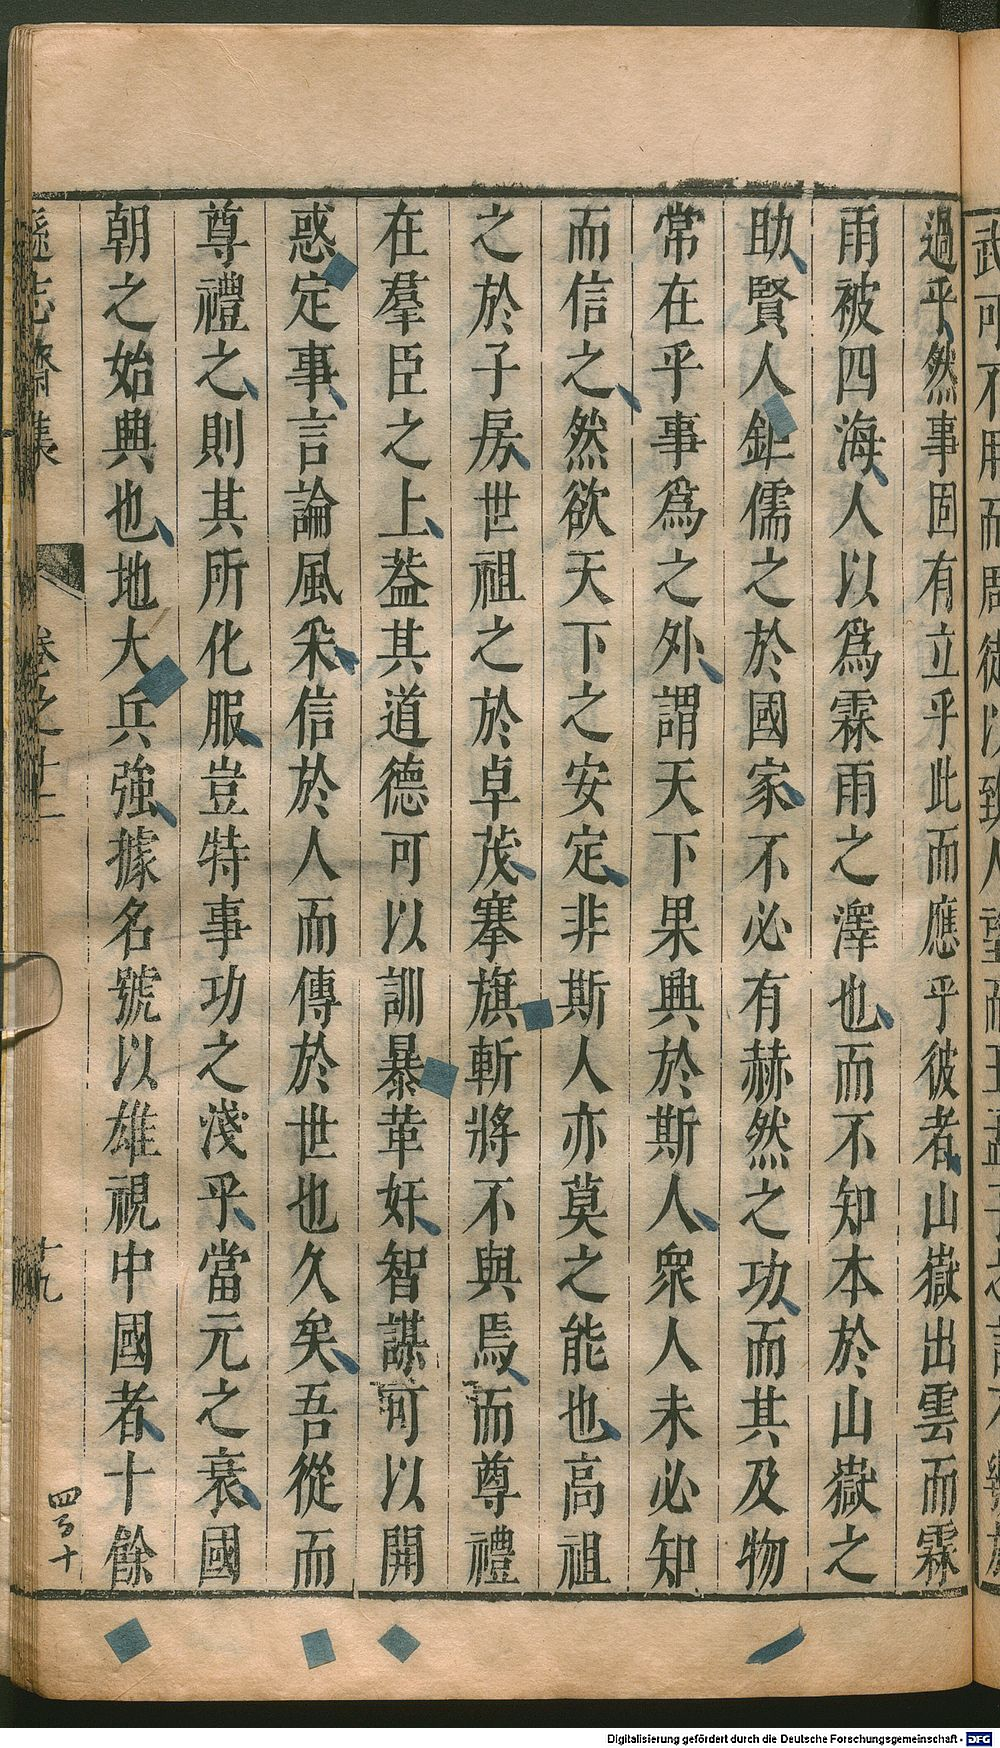 過乎然事固有立乎此而應乎彼者山嶽出雲而霖
雨被四海人以爲霖雨之澤也而不知本於山嶽之
助賢人鉅儒之於國家不必有赫然之功而其及物
常在乎事爲之外謂天下果興於斯人衆人未必知
而信之然欲天下之安定非斯人亦莫之能也高祖
之於子房世祖之於卓茂搴旗斬將不與焉而尊禮
在羣臣之上葢其道德可以訓暴革奸智謀可以開
惑定事言論風采信於人而傳於世也久矣吾從而
尊禮之則其所化服豈特事功之淺乎當元之衰國
朝之始興也地大兵強據名號以雄視中國者十餘
遜志齋集 卷之十二 十九
四百十
Digitalisierung gefördert durch die Deutsche Forschungsgemeinschaft - DFG